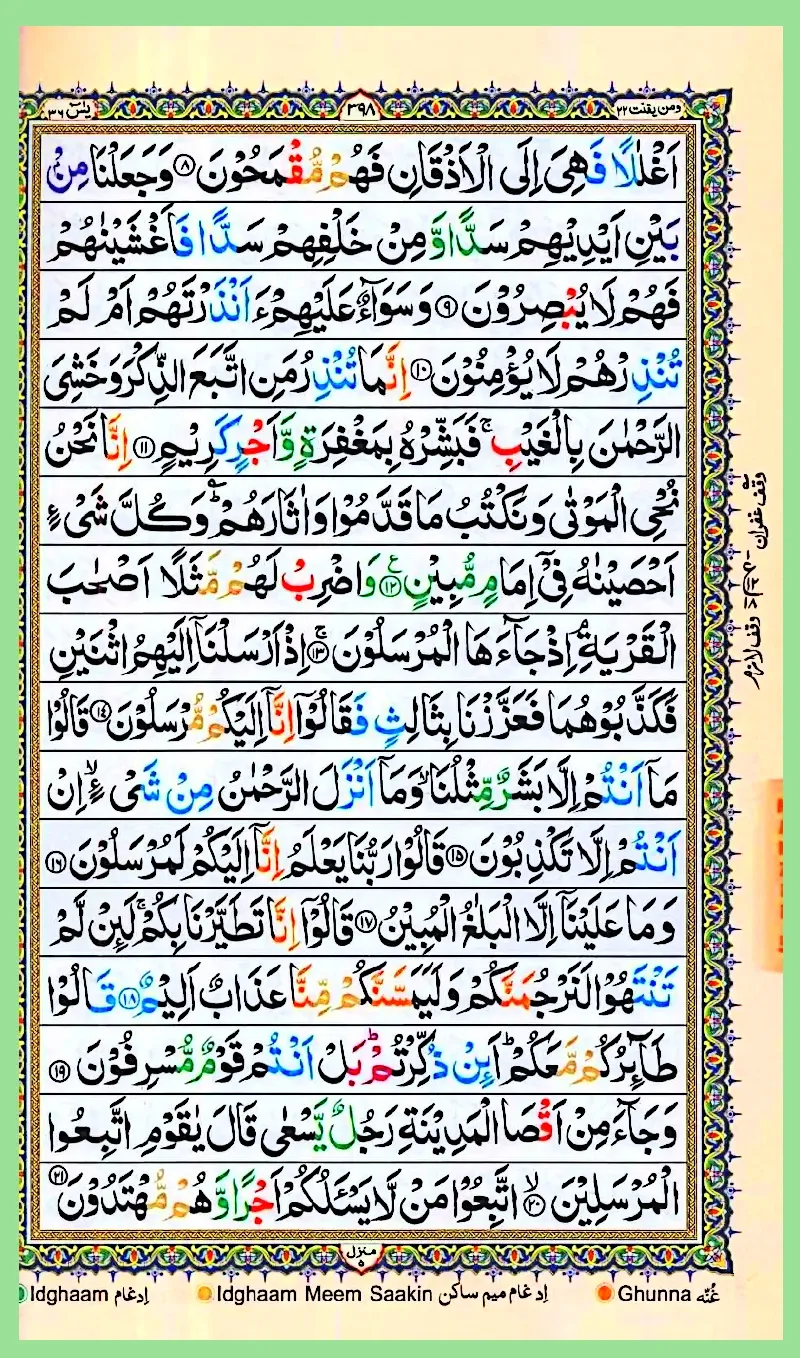 ومن يقنت ٢٢
٣٩٨
يٰسٓ ٣٦
اَغْلٰلًا فَهِیَ اِلَی الْاَذْقَانِ فَهُمْ مُّقْمَحُوْنَ ۝۸ وَجَعَلْنَا مِنْۢ
بَیْنِ اَیْدِیْهِمْ سَدًّا وَّمِنْ خَلْفِهِمْ سَدًّا فَاَغْشَیْنٰهُمْ
فَهُمْ لَا یُبْصِرُوْنَ ۝۹ وَسَوَآءٌ عَلَیْهِمْ ءَاَنْذَرْتَهُمْ اَمْ لَمْ
تُنْذِرْهُمْ لَا یُؤْمِنُوْنَ ۝۱۰ اِنَّمَا تُنْذِرُ مَنِ اتَّبَعَ الذِّكْرَ وَخَشِیَ
الرَّحْمٰنَ بِالْغَیْبِ ۚ فَبَشِّرْهُ بِمَغْفِرَةٍ وَّاَجْرٍ كَرِیْمٍ ۝۱۱ اِنَّا نَحْنُ
نُحْیِ الْمَوْتٰی وَنَكْتُبُ مَا قَدَّمُوْا وَاٰثَارَهُمْ ؕ وَكُلَّ شَیْءٍ
اَحْصَیْنٰهُ فِیْۤ اِمَامٍ مُّبِیْنٍ ۝۱۲ ع وَاضْرِبْ لَهُمْ مَّثَلًا اَصْحٰبَ
الْقَرْیَةِ ۘ اِذْ جَآءَهَا الْمُرْسَلُوْنَ ۝۱۳ۚ اِذْ اَرْسَلْنَاۤ اِلَیْهِمُ اثْنَیْنِ
فَكَذَّبُوْهُمَا فَعَزَّزْنَا بِثَالِثٍ فَقَالُوْۤا اِنَّاۤ اِلَیْكُمْ مُّرْسَلُوْنَ ۝۱۴ قَالُوْا
مَاۤ اَنْتُمْ اِلَّا بَشَرٌ مِّثْلُنَا ۙ وَمَاۤ اَنْزَلَ الرَّحْمٰنُ مِنْ شَیْءٍ ۙ اِنْ
اَنْتُمْ اِلَّا تَكْذِبُوْنَ ۝۱۵ قَالُوْا رَبُّنَا یَعْلَمُ اِنَّاۤ اِلَیْكُمْ لَمُرْسَلُوْنَ ۝۱۶
وَمَا عَلَیْنَاۤ اِلَّا الْبَلٰغُ الْمُبِیْنُ ۝۱۷ قَالُوْۤا اِنَّا تَطَیَّرْنَا بِكُمْ ۚ لَىِٕنْ لَّمْ
تَنْتَهُوْا لَنَرْجُمَنَّكُمْ وَلَیَمَسَّنَّكُمْ مِّنَّا عَذَابٌ اَلِیْمٌ ۝۱۸ قَالُوْا
طَآىِٕرُكُمْ مَّعَكُمْ ؕ اَىِٕنْ ذُكِّرْتُمْ ؕ بَلْ اَنْتُمْ قَوْمٌ مُّسْرِفُوْنَ ۝۱۹
وَجَآءَ مِنْ اَقْصَا الْمَدِیْنَةِ رَجُلٌ یَّسْعٰی قَالَ یٰقَوْمِ اتَّبِعُوا
الْمُرْسَلِیْنَ ۝۲۰ۙ اتَّبِعُوْا مَنْ لَّا یَسْـَٔلُكُمْ اَجْرًا وَّهُمْ مُّهْتَدُوْنَ ۝۲۱
منزل ٥
Idghaam ادغام
Idghaam Meem Saakin ادغام میم ساکن
Ghunna غُنّه
وقف غفران
وقف لازم